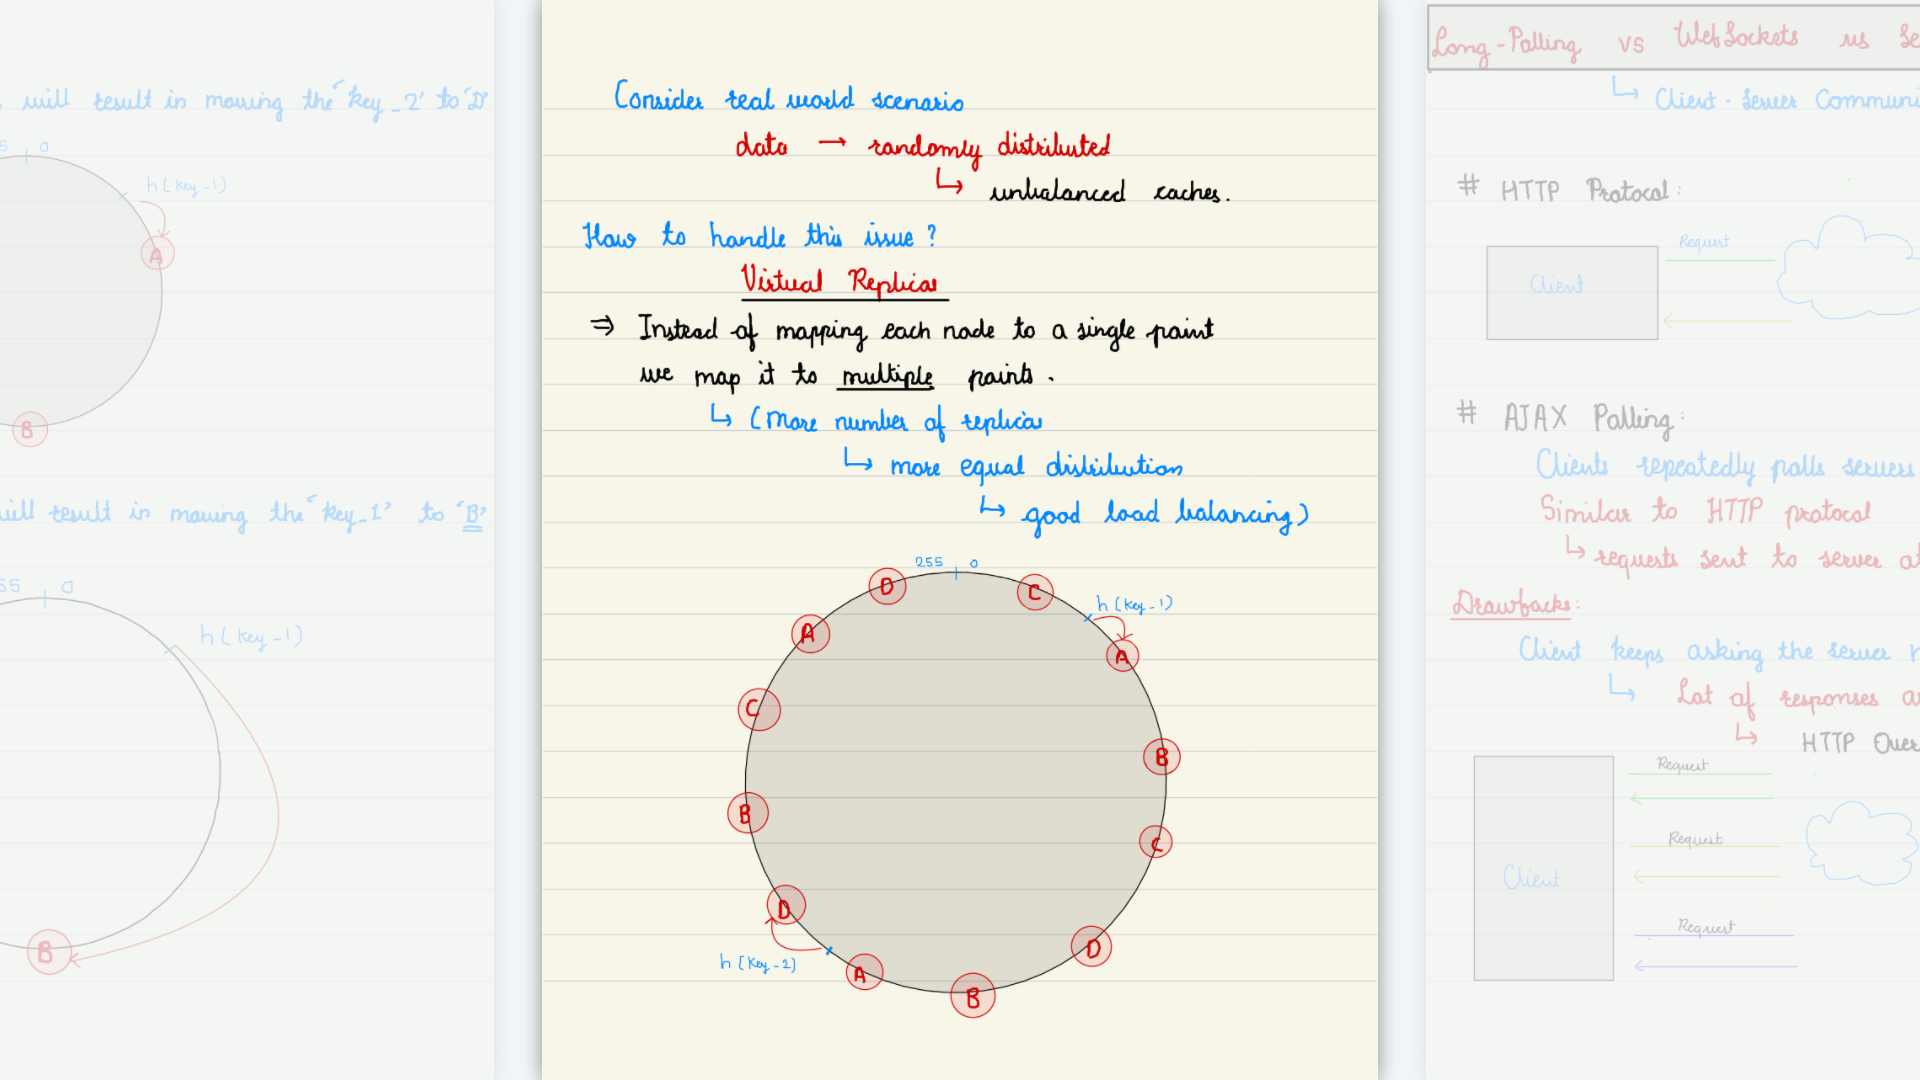 will result in moving the "key_2" to 'D'
0
h(key-1)
A
B
will result in moving the "key_1" to 'B'
0
h(key-1)
B
Consider real world scenario
data → randomly distributed
↳ unbalanced caches.
How to handle this issue?
Virtual Replicas
⇒ Instead of mapping each node to a single point
we map it to multiple points.
↳ (More number of replicas
↳ more equal distribution
↳ good load balancing)
255 0
D
C
h(key-1)
A
A
C
B
B
C
D
D
h(key-2)
A
B
Long-Polling vs WebSockets vs Se
↳ Client-Server Communi
# HTTP Protocol:
Request
Client
# AJAX Polling:
Clients repeatedly polls servers
Similar to HTTP protocol
↳ requests sent to server at
Drawbacks:
Client keeps asking the server
↳ Lot of responses
↳ HTTP Over
Request
Request
Client
Request